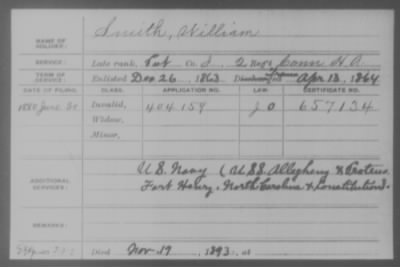 Smith, William
NAME OF SOLDIER:
SERVICE: Late rank, Pvt Co. I, 2 Reg't Conn H.A.
TERM OF SERVICE: Enlisted Dec 26, 1863 Apr 18, 1864
DATE OF FILING. CLASS. APPLICATION NO. LAW. CERTIFICATE NO.
1880 June Invalid, 404.159 657134
Widow,
Minor,
ADDITIONAL SERVICES: U.S. Navy (U.S.S. Allegheny & Proteus
Fort Henry, North Carolina & Constitution).
REMARKS:
Died Nov. 19, 1893, at